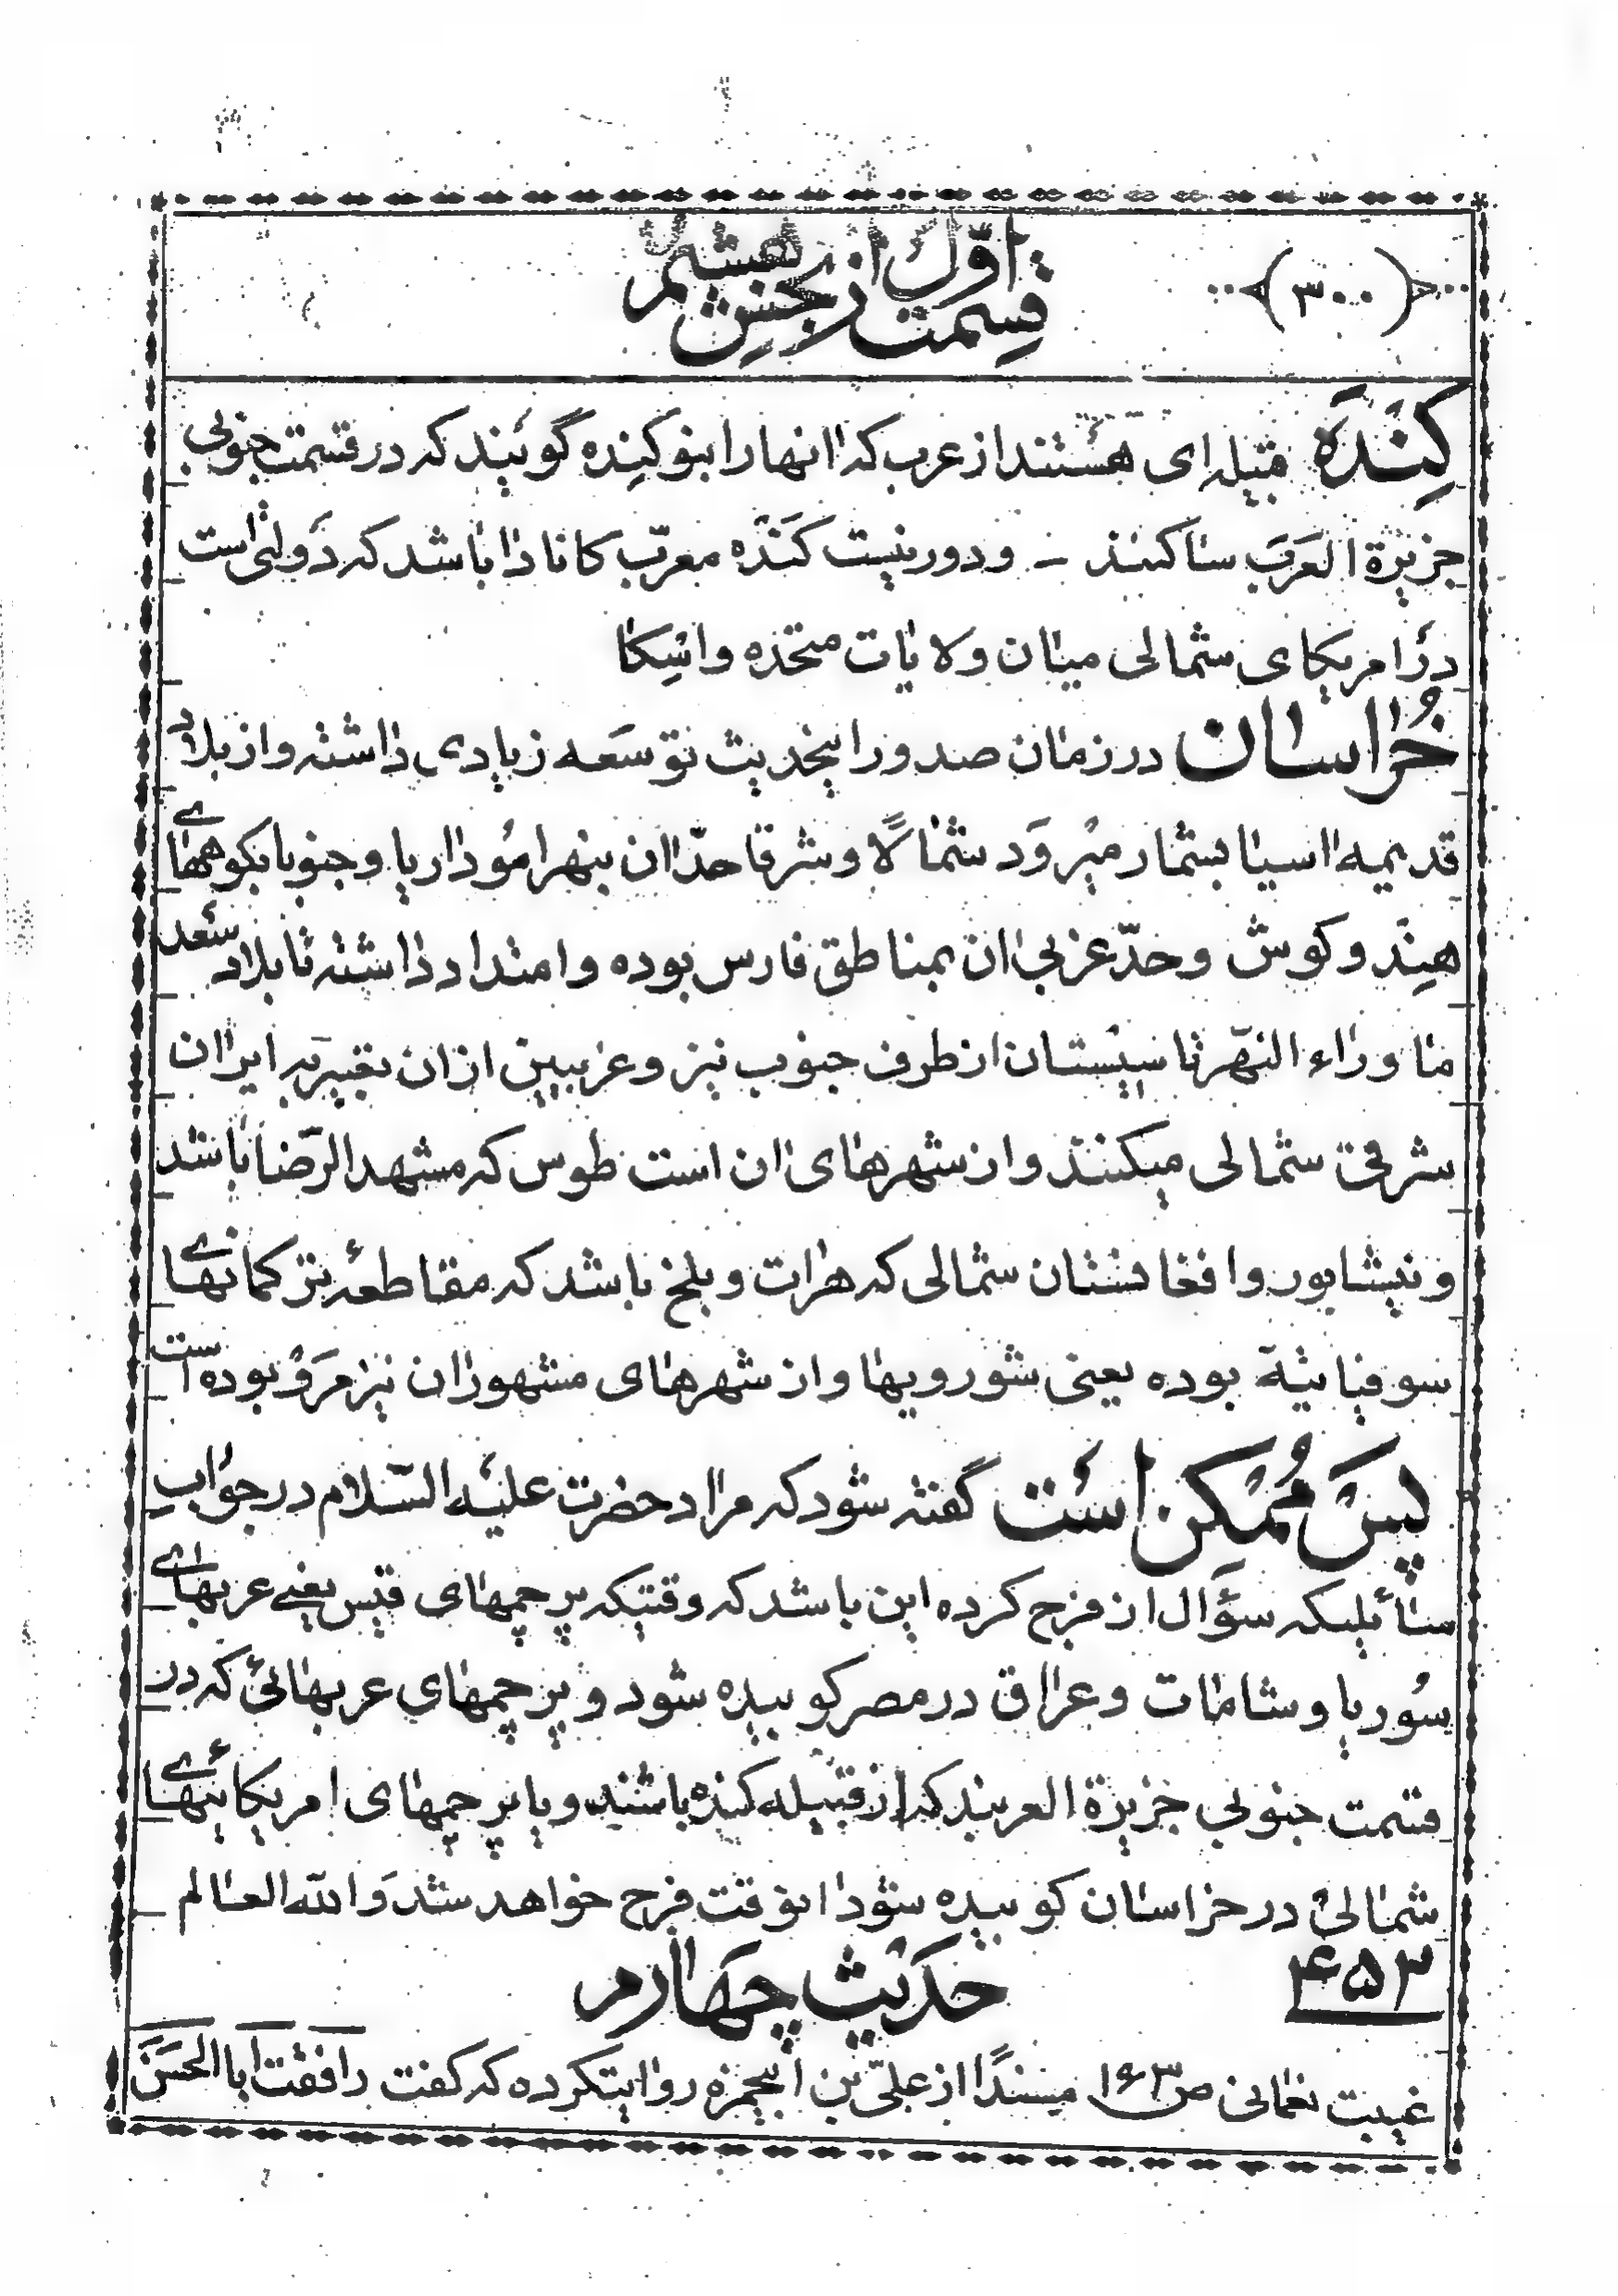 (۳۰۰)
قسمت اوّل از بخش هشتم
کِنْدَه قبیله ای هستند از عرب که انها را بنو کِنده گویند که در قسمت جنوبی
جزیرة العَرَب ساکنند - و دور نیست کَنَدَه معرّب کانادا باشد که دَولتی است
در امریکای شمالی میان ولایات متحده واسِکا
خُراسان در زمان صدور اینحدیث توسَعه زیادی داشته و از بلاد
قدیمیه اسیا بشمار میرَوَد شمالًا و شرقا حدّ ان بنهر امُو داریا و جنوبا بکوههای
هِنْدوکوش و حدّ غربی ان بمناطق فارس بوده و امتداد داشته تا بلاد سُغد
ما وراء النهر تا سیستان از طرف جنوب نیز و غربیین از ان تعبیر به ایران
شرقی شمالی میکنند و از شهرهای ان است طوس که مشهد الرّضا باشد
و نیشابور و افغانستان شمالی که هرات و بلخ باشد که مقاطعهٔ ترکمانهای
سوفیاتیة بوده یعنی شورویها و از شهرهای مشهور ان نیز مَرْو بوده است
پس مُمکن است گفته شود که مراد حضرت علیه السّلام در جواب
سائلیکه سؤال از فرج کرده این باشد که وقتیکه پرچمهای قیس یعنی عربهای
سُوریا و شامات و عراق در مصر کوبیده شود و پرچمهای عربهائی که در
قسمت جنوبی جزیرة العربند که از قبیله کنده باشند و یا پرچمهای امریکائیهای
شمالی در خراسان کوبیده شود انوقت فرج خواهد شد وَالله العالم
۴۵۳ حدیث چهارم
غیبت نعمانی ص ۱۶۳ مسندًا از علیّ بن ابیحمزه روایتکرده که گفت رافقتُ اَبَا الحَسَنِ